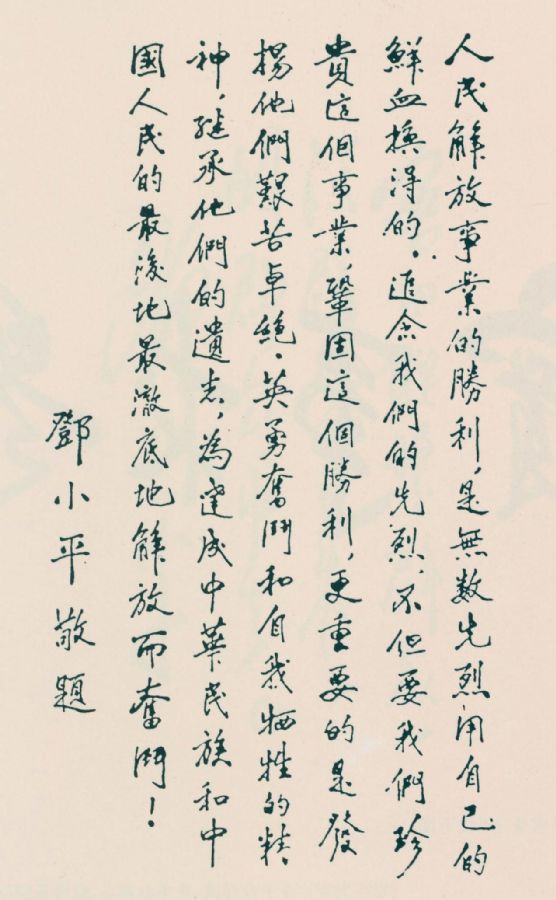 人民解放事業的勝利，是無数先烈用自己的
鮮血換得的．追念我們的先烈，不但要我們珍
貴這個事業，鞏固這個勝利，更重要的是發
揚他們艱苦卓絕、英勇奮鬥和自我牺牲的精
神，繼承他們的遺志，為達成中華民族和中
國人民的最後地最澈底地解放而奮鬥！
鄧小平敬題